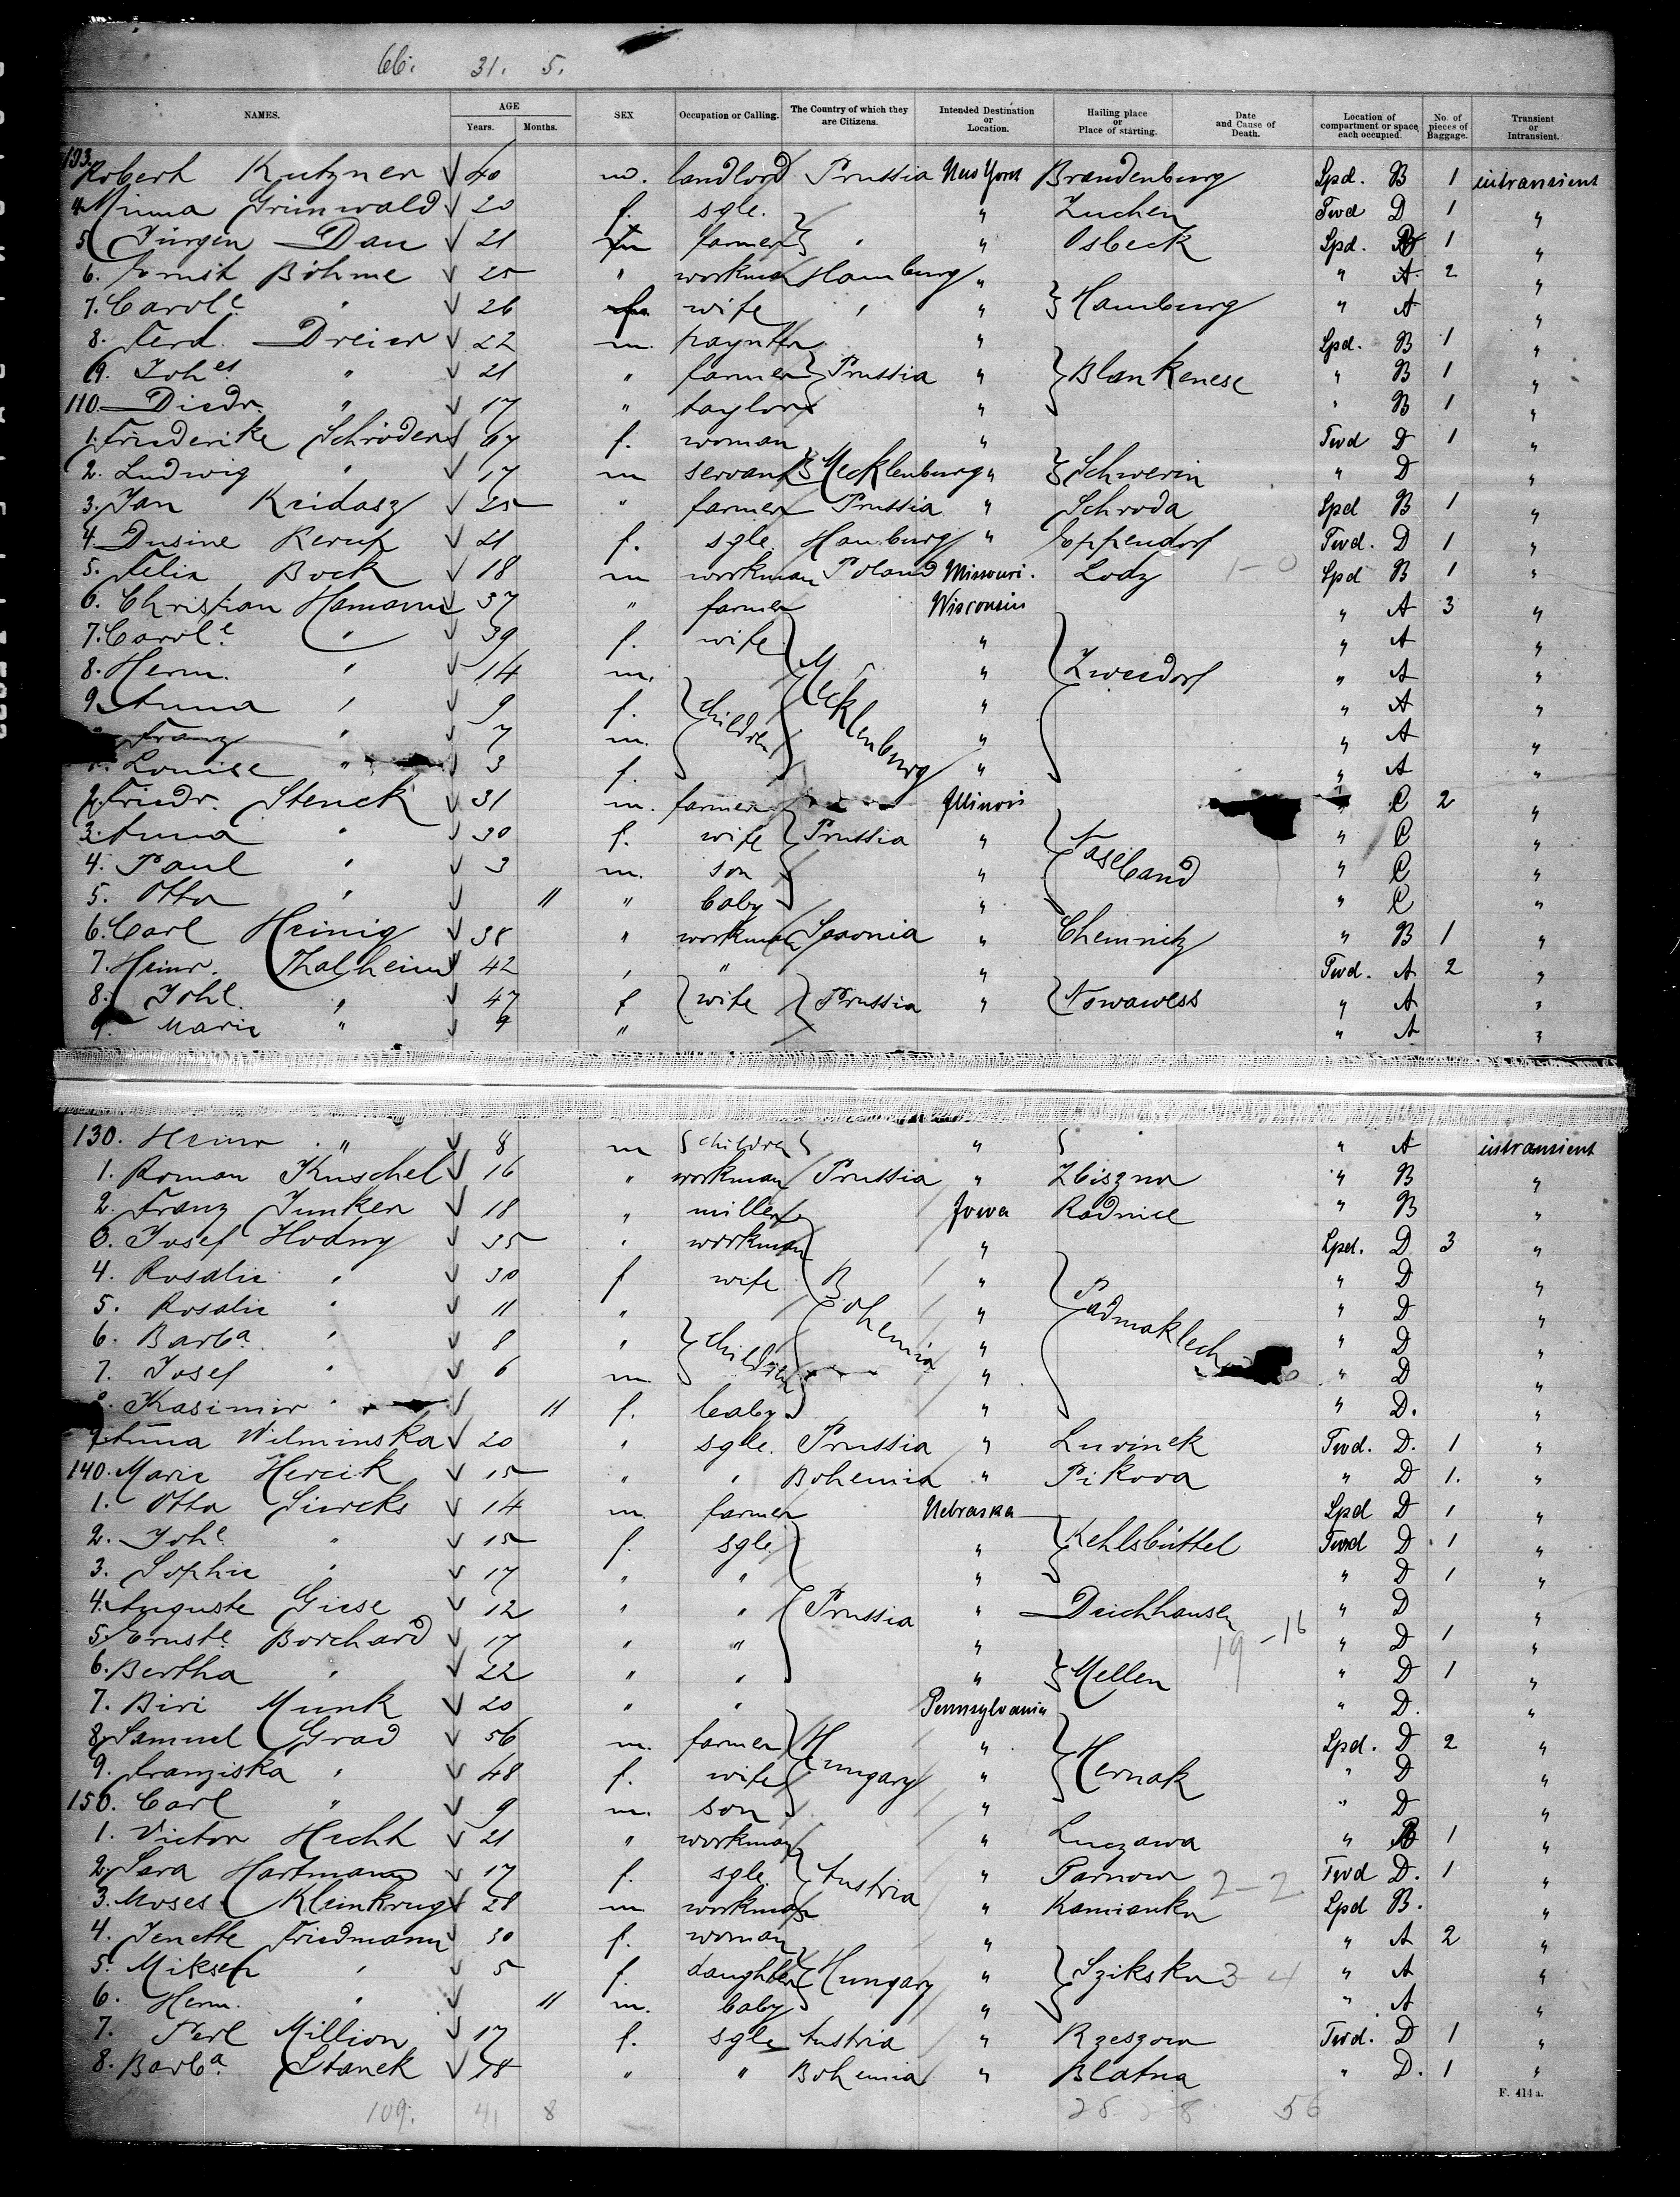 66. 31. 5.
NAMES. AGE Years. Months. SEX Occupation or Calling. The Country of which they are Citizens. Intended Destination or Location. Hailing place or Place of starting. Date and Cause of Death. Location of compartment or space each occupied. No. of pieces of Baggage. Transient or Intransient.
193. Robert Kutzner √ 40 m. landlord Prussia New York Brandenburg Spd. B 1 intransient
4. Minna Grünwald √ 20 f. sgle. " Zuchen Twd D 1 "
5. Jürgen Dau √ 21 m farmer " " Osbeck Spd. B 1 "
6. Ernst Böhme √ 25 " workman Hamburg " " A 2 "
7. Carol.e " √ 26 f. wife " " Hamburg " A "
8. Ferd. Dreier √ 22 m. paynter " Spd. B 1 "
9. Joh.es " √ 21 " farmer Prussia " Blankenese " B 1 "
110. Diedr. " √ 17 " taylor " " B 1 "
1. Friederike Schröder √ 67 f. woman " Twd D 1 "
2. Ludwig " √ 17 m servant Mecklenburg " Schwerin " D "
3. Jan Kridasz √ 25 " farmer Prussia " Schroda Spd B 1 "
4. Dusine Rerup √ 21 f. sgle. Hamburg " Eppendorf Twd. D 1 "
5. Felix Bock √ 18 m workman Poland Missouri. Lodz 1-0 Spd B 1 "
6. Christian Hamann √ 37 " farmer Wisconsin " A 3 "
7. Carol.e " √ 39 f. wife " " A "
8. Herm. " √ 14 m. Mecklenburg " Zweedorf " A "
9. Anna " √ 9 f. children " " A "
Franz " √ 7 m. " " A "
Louise " √ 3 f. " " A "
2. Friedr. Stenck √ 31 m. farmer Illinois " C 2 "
3. Anna " √ 30 f. wife Prussia " Naseband " C "
4. Paul " √ 3 m. son " " C "
5. Otto " √ 11 " baby " " C "
6. Carl Heinig √ 38 " workman Saxonia " Chemnitz " B 1 "
7. Heinr. Thalheim √ 42 " " " Twd. A 2 "
8. Joh.e " √ 47 f wife Prussia " Nowawess " A "
9. Marie " √ 9 " " A "
130. Heinr " √ 8 m children " " A intransient
1. Roman Kuschel √ 16 " workman Prussia " Zbiszno " B "
2. Franz Junker √ 18 " miller Iowa Radnice " B "
3. Josef Hodny √ 35 " workman " Spd. D 3 "
4. Rosalie " √ 30 f wife Bohemia " Padmoklech " D "
5. Rosalie " √ 11 " " " D "
6. Barb.a " √ 8 " children " " D "
7. Josef " √ 6 m " " D "
Kasimir " √ 11 f. baby " " D. "
9. Anna Wilminska √ 20 " sgle. Prussia " Luvinek Twd. D. 1 "
140. Marie Hercik √ 15 " " Bohemia " Pikova " D 1. "
1. Otto Siercks √ 14 m. farmer Nebraska Spd D 1 "
2. Joh.e " √ 15 f. sgle. " Kehlsbüttel Twd D 1 "
3. Sophie " √ 17 " " " " D 1 "
4. Auguste Giese √ 12 " " Prussia " Deichhausen " D "
5. Ernst.e Borchard √ 17 " " " 19-16 " D 1 "
6. Bertha " √ 22 " " " Mellen " D 1 "
7. Biri Munk √ 20 " " Pennsylvania " D. "
8. Samuel Grad √ 56 m. farmer Hungary " Hernak Spd. D 2 "
9. Franziska " √ 48 f. wife " " D "
150. Carl " √ 9 m. son " " D "
1. Victor Hecht √ 21 " workman " Luczawa " B 1 "
2. Sara Hartmann √ 17 f. sgle. Austria " Tarnow 2-2 Twd D. 1 "
3. Moses Kleinkrug √ 28 m workman " Kamianka Spd B. "
4. Jenette Friedmann √ 30 f. woman " " A 2 "
5. Miksch " √ 5 f. daughter Hungary " Szikska 3-4 " A "
6. Herm. " √ 11 m. baby " " A "
7. Perl Million √ 17 f. sgle Austria " Rzeszow Twd. D 1 "
8. Barb.a Stanek √ 18 " " Bohemia " Blatna " D. 1 "
F. 414 a.
109. 41 8 56